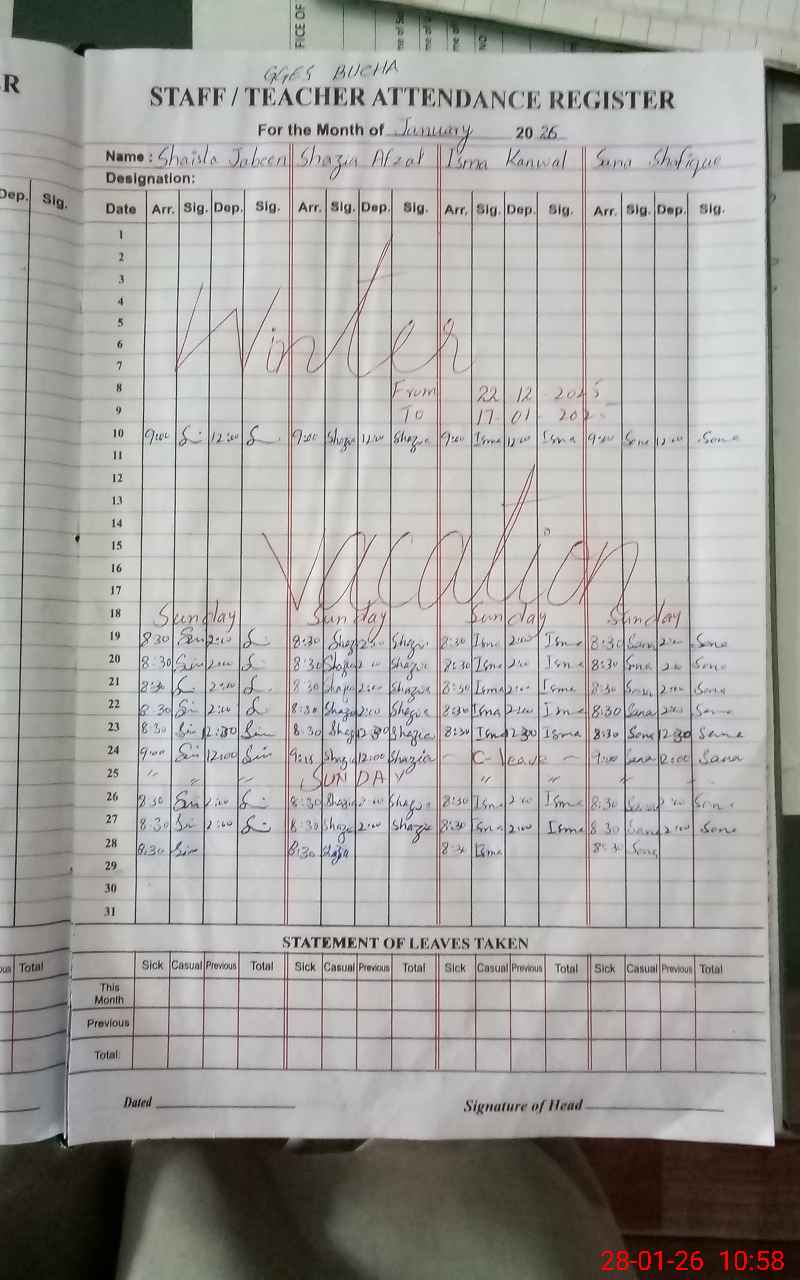 FICE OF
NO
R
GGES BUCHA
STAFF / TEACHER ATTENDANCE REGISTER
For the Month of January 20 26
Name : Shaista Jabeen Shazia Afzal Isma Kanwal Sana Shafique
Designation:
Dep. Sig.
Date Arr. Sig. Dep. Sig. Arr. Sig. Dep. Sig. Arr. Sig. Dep. Sig. Arr. Sig. Dep. Sig.
1
2
3
4
5
6
Winter
7
8 From 22 12 2025
9 To 17 01
10 9:00 12:00 9:00 Shazia 12:00 Shazia 9:00 Isma 12:00 Isma 9:00 Sana 12:00 Sana
11
12
13
14
15
16
Vacation
17
18 Sunday Sunday Sunday Sunday
19 8:30 2:00 8:30 Shazia 2:00 Shazia 8:30 Isma 2:00 Isma 8:30 Sana 2:00 Sana
20 8:30 2:00 8:30 Shazia 2:00 Shazia 8:30 Isma 2:00 Isma 8:30 Sana 2:00 Sana
21 8:30 2:00 8:30 Shazia 2:00 Shazia 8:30 Isma 2:00 Isma 8:30 Sana 2:00 Sana
22 8:30 2:00 8:30 Shazia 2:00 Shazia 8:30 Isma 2:00 Isma 8:30 Sana 2:00 Sana
23 8:30 12:30 8:30 Shazia 12:30 Shazia 8:30 Isma 12:30 Isma 8:30 Sana 12:30 Sana
24 9:00 12:00 9:15 Shazia 12:00 Shazia - C- leave - 9:00 Sana 12:00 Sana
25 " " " SUNDAY " " " "
26 8:30 2:00 8:30 Shazia 2:00 Shazia 8:30 Isma 2:00 Isma 8:30 Sana 2:00 Sana
27 8:30 2:00 8:30 Shazia 2:00 Shazia 8:30 Isma 2:00 Isma 8:30 Sana 2:00 Sana
28 8:30 8:30 Shazia 8:30 Isma 8:30 Sana
29
30
31
STATEMENT OF LEAVES TAKEN
Total
Sick Casual Previous Total Sick Casual Previous Total Sick Casual Previous Total Sick Casual Previous Total
This Month
Previous
Total:
Dated Signature of Head
28-01-26 10:58